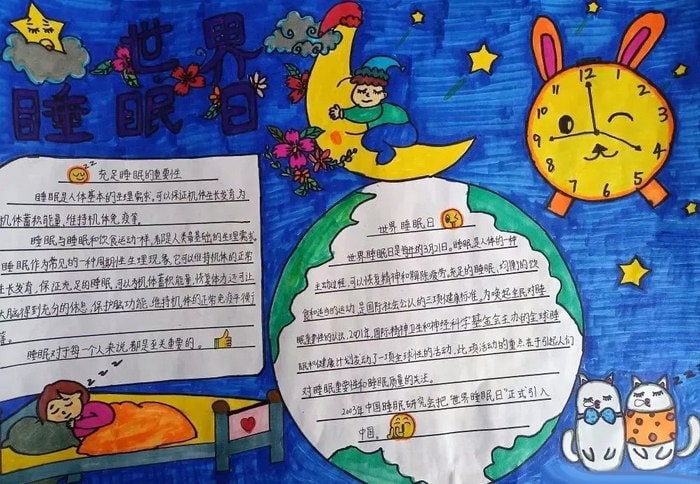 世界
睡眠日
充足睡眠的重要性
睡眠是人体基本的生理需求。可以保证机体生长发育为
机体蓄积能量,维持机体免疫等。
睡眠与睡眠和饮食运动一样,都是人类最基础的生理需求。
睡眠作为常见的一种周期性生理现象,它可以维持机体的正常
生长发育,保证充足的睡眠,可以为机体蓄积能量,恢复体力,还可让
大脑得到充分的休息,保护脑功能,维持机体的正常免疫
等。
睡眠对于每一个人来说,都是至关重要的。
世界睡眠日
世界睡眠日是每年的3月21日。睡眠是人体的一种
主动过程,可以恢复精神和解除疲劳。充足的睡眠、均衡的饮
食和适当的运动,是国际社会公认的三项健康标准。为唤起全民对睡
眠重要性的认识,2001年,国际精神卫生和神经科学基金会主办的全球睡
眠和健康计划发动了一项全球性的活动,此项活动的重点在于引起人们
对睡眠重要性和睡眠质量的关注。
2003年中国睡眠研究会把"世界睡眠日"正式引入
中国。
12
1
2
3
4
5
6
7
8
9
10
11
z z z
z z z